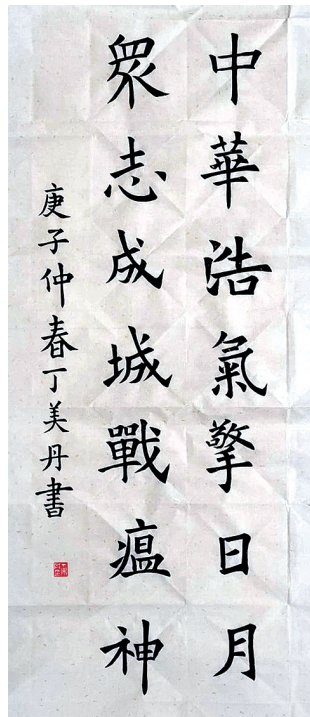 中華浩氣擎日月
衆志成城戰瘟神
庚子仲春丁美丹書